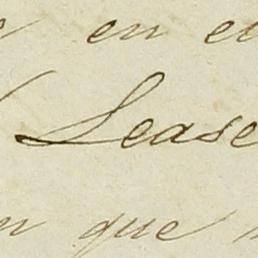 en
Lease
que